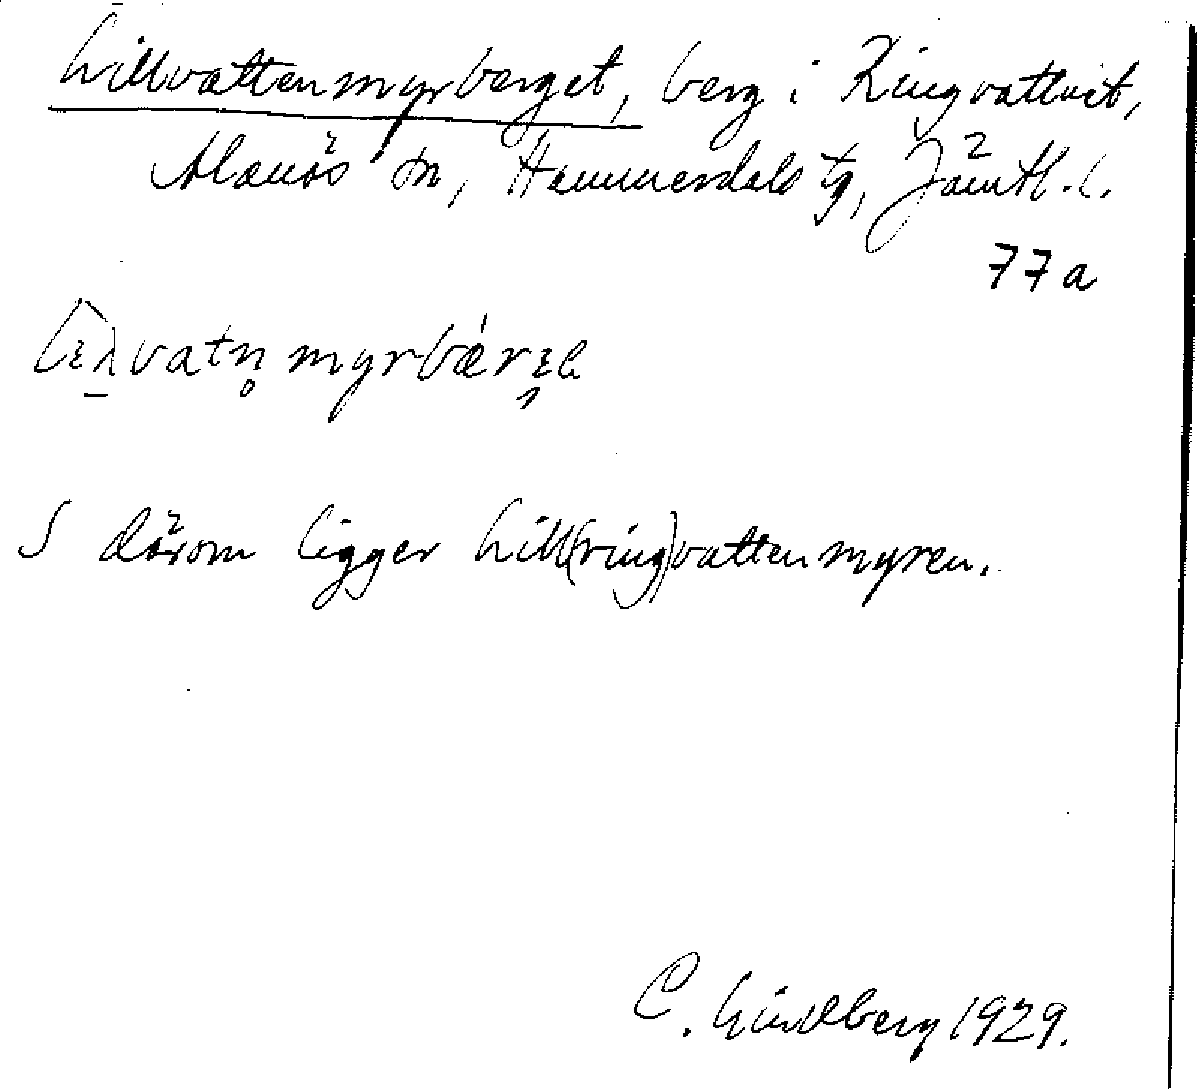 Lillvattenmyrberget, berg i Ringvattnet,
Alanäs sn, Hammerdals tg, Jämtl. l.
77a
myrbær
S därom ligger Lill(ring)vattenmyren.
C. Lindberg 1929.